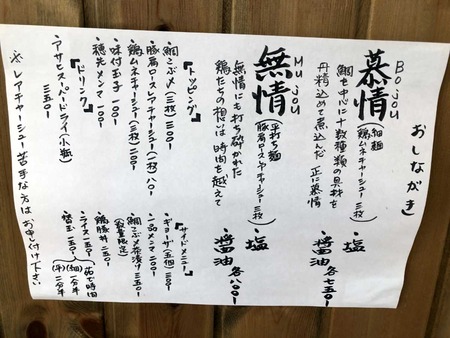 おしながき
Bojou
慕情
(細麺
鶏ムネチャーシュー三枚)
・塩
・醤油
各七五〇-
鯛を中心に十数種類の具材を
丹精込めて煮込んだ正に慕情
Mujou
無情
(平打ち麺
豚肩ロースレアチャーシュー三枚)
・塩
・醤油
各八〇〇-
無情にも打ち砕かれた
鶏たちの想いは時間を越えて
『トッピング』
・鯛こぶ〆(三枚)三〇〇-
・豚肩ロースレアチャーシュー(一枚)八〇-
・鶏ムネチャーシュー(三枚)二〇〇-
・味付玉子 一〇〇-
・穂先メンマ 一〇〇-
『ドリンク』
・アサヒスーパードライ(小瓶)
三五〇-
『サイドメニュー』
・ギョーザ(五個)三〇〇-
・一品メンマ 二〇〇-
・鯛こぶ〆茶漬け 三五〇-
(数量限定)
・鶏豚丼 二五〇-
・ライス 一五〇-
・替玉 一五〇-
茹で時間
(細)一分
(平)二分半
※レアチャーシュー苦手な方はお申し付け下さい